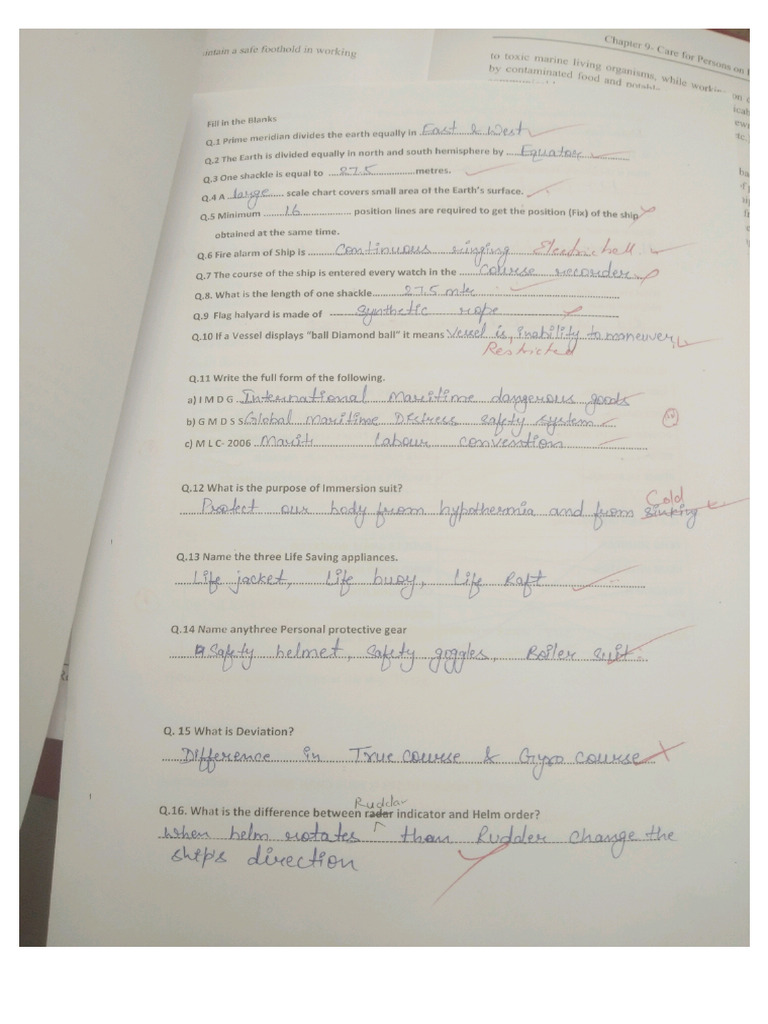 intain a safe foothold in working
Chapter 9- Care for Persons on
to toxic marine living organisms, while working on
by contaminated food and notably
Fill in the Blanks
Q.1 Prime meridian divides the earth equally in East & West
Q.2 The Earth is divided equally in north and south hemisphere by Equator
Q.3 One shackle is equal to 27.5 metres.
Q.4 A large scale chart covers small area of the Earth's surface.
Q.5 Minimum 16 position lines are required to get the position (Fix) of the ship
obtained at the same time.
Q.6 Fire alarm of Ship is Continuous ringing Electric bell
Q.7 The course of the ship is entered every watch in the course recorder
Q.8. What is the length of one shackle 27.5 mtr
Q.9 Flag halyard is made of synthetic rope
Q.10 If a Vessel displays "ball Diamond ball" it means Vessel is, inability to maneuver,
Restricted
Q.11 Write the full form of the following.
a) I M D G International Maritime dangerous goods
b) G M D S S Global Maritime Distress safety system
c) M L C- 2006 Marit labour convention
Q.12 What is the purpose of Immersion suit?
Cold
Protect our body from hypothermia and from sinking
Q.13 Name the three Life Saving appliances.
Life jacket, Life buoy, Life Raft
Q.14 Name anythree Personal protective gear
Safety helmet, safety goggles, Boiler suit.
Q. 15 What is Deviation?
Difference in True course & Gyro course
Ruddar
Q.16. What is the difference between rader indicator and Helm order?
When helm rotates than Rudder change the
ship's direction